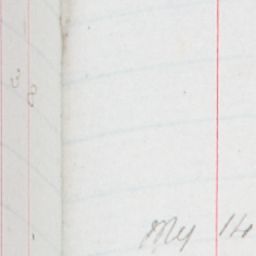 38
My 14